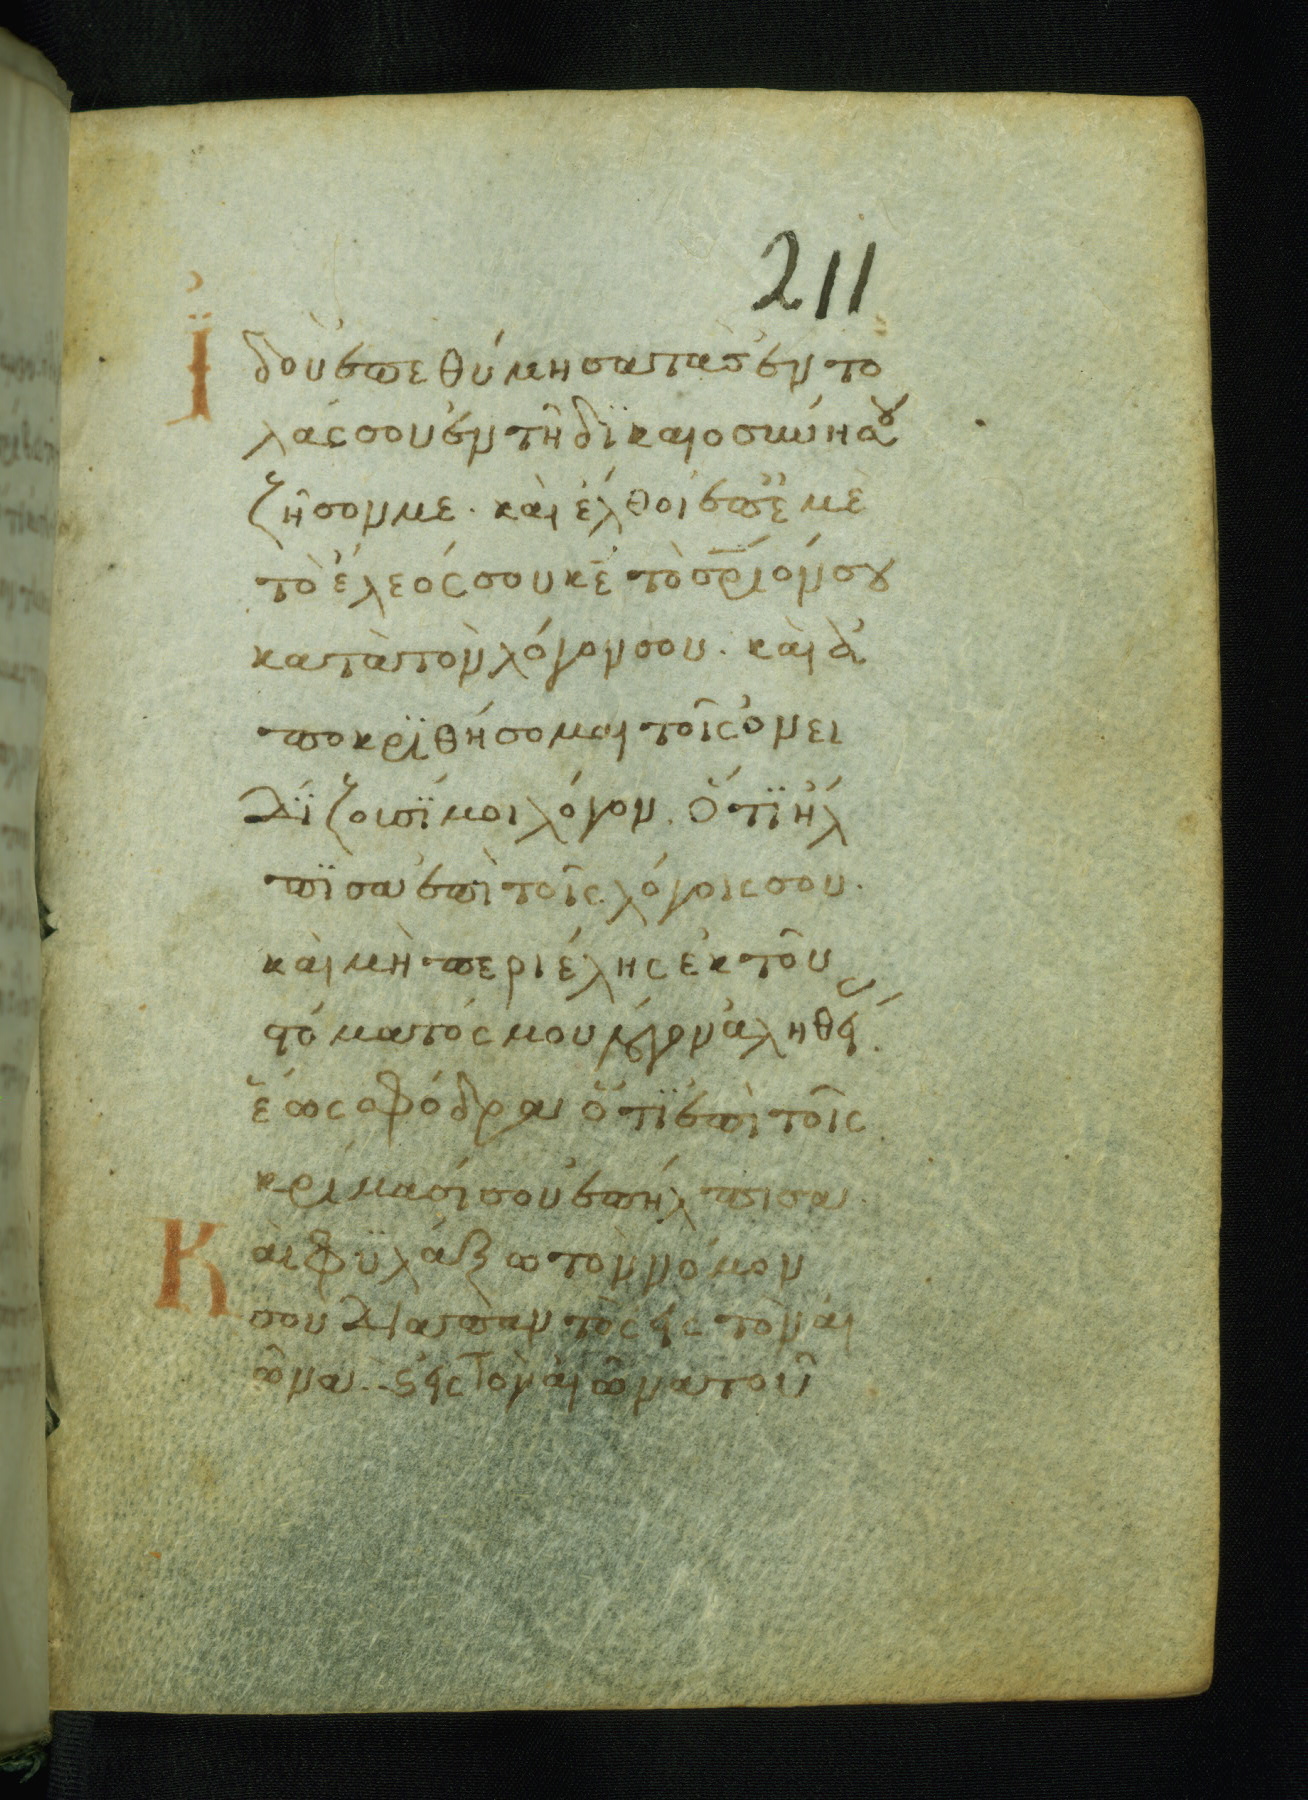 211
Ἰ̈δοὺ ἐπεθύμησα τὰς ἐντο
λάς σου ἐν τῆ δϊκαιοσύνη σου
ζῆσον με. καὶ ἔλθοι ἐπ ἐμὲ
τὸ ἔλεός σου κε τὸ σρ̅ϊον σου
κατὰ τὸν λόγον σου. καὶ ἀ
ποκρϊθήσομαι τοῖς ὀνει
δΐζουσΐ μοι λόγον. ὅτϊ ἤλ
πϊσα ἐπὶ τοῖς λόγοις σου.
καὶ μὴ περιέλης ἐκ τοῦ
στόματός μου λόγον ἀληθεί
ἕως σφόδρα ὅτϊ ἐπὶ τοῖς
κρίμασί σου ἐπήλπισα.
Καὶ φϋλάξω τὸν νόμον
σου διαπαντὸς εἰς τὸν αἰ
ῶνα. ϗ εἰς τὸν αἰῶνα τοῦ